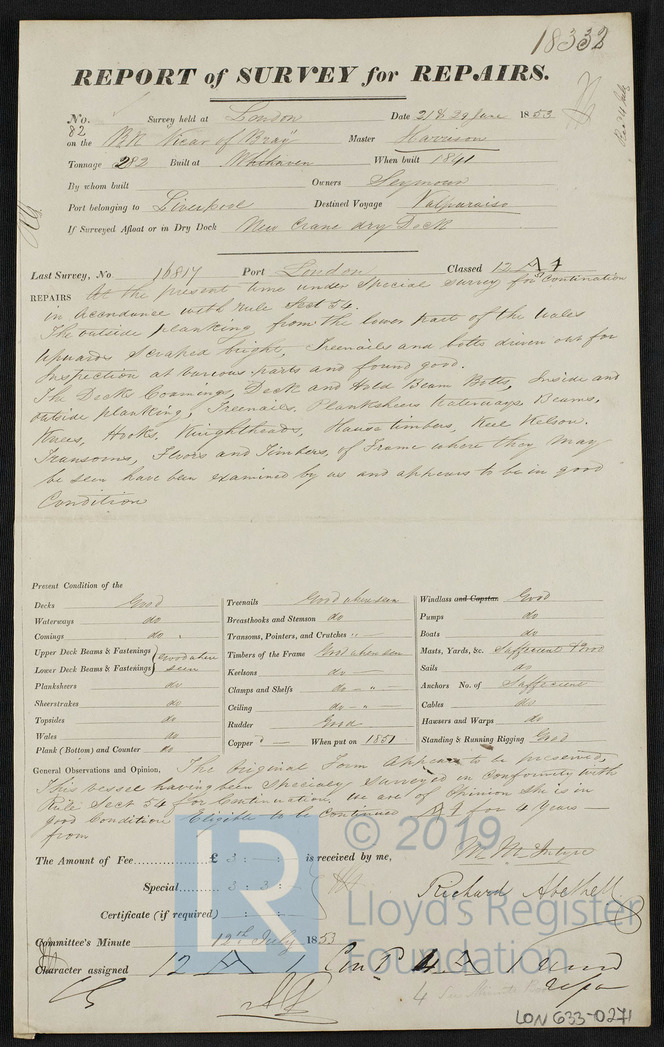 18332
REPORT of SURVEY for REPAIRS.
No. 82 Survey held at London Date 21 & 29 June 1853
on the Bk "Vicar of Bray" Master Harrison
Tonnage 282 Built at Whthaven When built 1841
By whom built Owners Seymour
Port belonging to Liverpool Destined Voyage Valparaiso
If Surveyed Afloat or in Dry Dock New Crane dry Dock
Last Survey, No. 16817 Port London Classed 12 A 1
REPAIRS At the present time under Special Survey for Continuation
in accordance with rule Sect 54.
The outside planking from the lower part of the Wales
upwards Scraped bright, Treenails and bolts driven out for
Inspection at various parts and found good.
The Decks Comings, Deck and Hold Beam Bolts, Inside and
outside planking, Treenails, Planksheers Waterways, Beams,
Knees, Hooks, Knightheads, Hause timbers, Keel Kelson.
Transoms, Floors and Timbers, of Frame where they may
be seen have been examined by us and appears to be in good
Condition
Present Condition of the
Decks Good
Waterways do
Comings do
Upper Deck Beams & Fastenings
Lower Deck Beams & Fastenings } Good when seen
Planksheers do
Sheerstrakes do
Topsides do
Wales do
Plank (Bottom) and Counter do
Treenails Good when seen
Breasthooks and Stemson do
Transoms, Pointers, and Crutches " —
Timbers of the Frame Good when seen
Keelsons do —
Clamps and Shelfs do — " —
Ceiling do — " —
Rudder Good
Copper'd — When put on 1851
Windlass and Capstan Good
Pumps do
Boats do
Masts, Yards, &c. Sufficient & Good
Sails do
Anchors No. of Sufficient
Cables do
Hawsers and Warps do
Standing & Running Rigging Good
General Observations and Opinion, The Original Form Appears to be preserved,
This vessel having been Specialy Surveyed in Conformity with
Rule Sect 54 for Continuation, we are of Opinion She is in
good Condition Eligible to be Continued A 1 for 4 Years —
from
The Amount of Fee £ 3 : - : - is received by me,
M McIntyre
Special 3 : 3 : -
Richard
Certificate (if required) : - :
Committee's Minute 12th July 1853
Character assigned 12 A 1 Con P 4 A 1
4
LON 633-0271
© 2019
LR
Lloyd's Register
Foundation